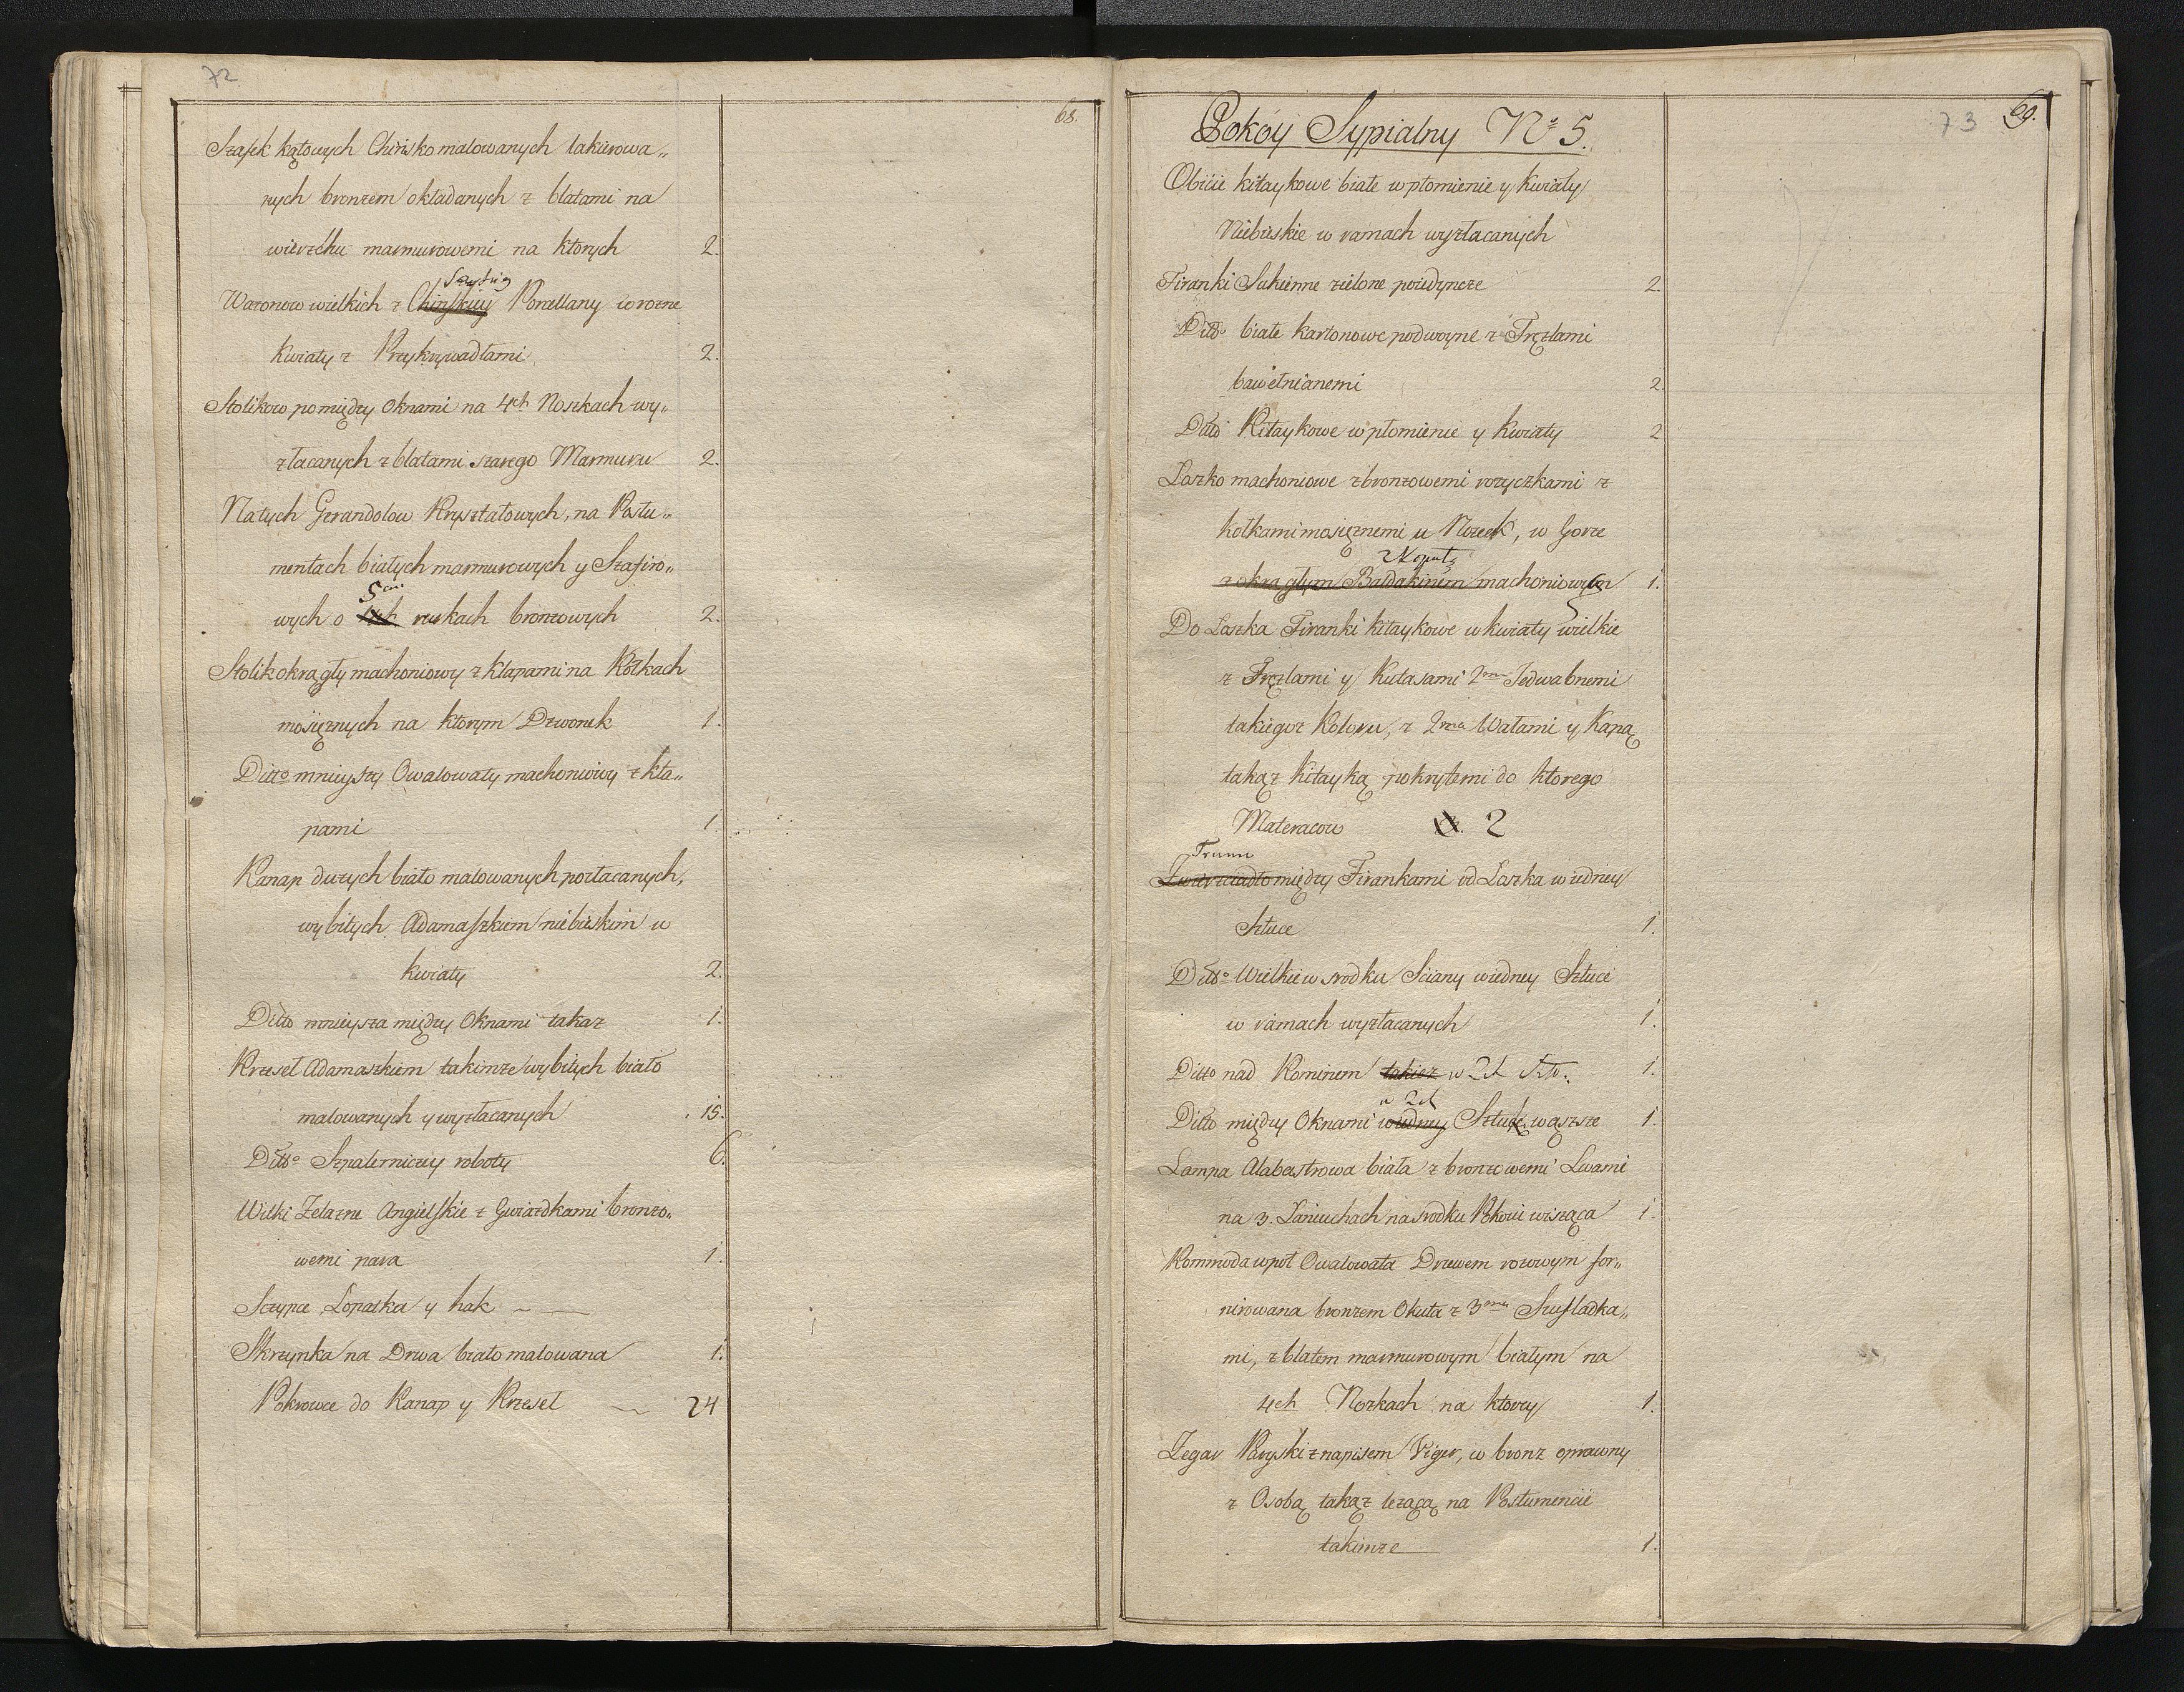 72
68.
Szafek kątowych Chinsko malowanych lakierowa„
nych bronzem okładanych z blatami na
wierzchu marmurowemi na ktorych 2.
Saskiey
Wazonow wielkich z Chinskiey Porcellany w rozne
kwiaty z Przykrywadłami 2.
Stolikow pomiędzy Oknami na 4ch Noszkach wy„
złacanych z blatami szarego Marmuru 2.
Na tych Gerandolow Krysztalowych, na Postu„
mentach białych marmurowych y Szafiro„
5ciu
wych o 4ch rurkach bronzowych 2.
Stolik okrągły machoniowy z klapami na Kołkach
mosięznych na ktorym Dzwonek 1.
Ditto mnieyszy Owalowaty machoniowy z kla„
pami 1.
Kanap duzych biało malowanych pozłacanych,
wybitych Adamaszkiem niebieskim w
kwiaty 2.
Ditto mnieysza między Oknami takaz 1.
Krzeseł Adamaszkiem takimze wybitych biało
malowanych y wyzłacanych 15.
Ditto Szpalerniczey roboty 6.
Wilki Zelazne Angielskie z Gwiazdkami bronzo„
wemi para 1.
Sczypce Lopatka y hak ~ —
Skrzynka na Drwa biało malowana 1.
Pokrowce do Kanap y Krzeseł ~ 24
73 69.
Pokóy Sypialny No 5.
Obicie kitaykowe białe w płomienie y Kwiaty
Niebieskie w ramach wyzłacanych
Firanki Sukienne zielone poiedyncze 2.
Ditto białe kartonowe podwoyne z Fręzlami
bawełnianemi 2.
Ditto Kitaykowe w płomienie y Kwiaty 2
Loszko machoniowe z bronzowemi rozyczkami z
kołkami mosięznemi u Nozek, w Gorze
z Kopułą
z okrągłym Baldakinem machoniowym 1.
Do Loszka Firanki kitaykowe w kwiaty wielkie
z Fręzlami y Kutasami 2ma Jedwabnemi
takiegoz Koloru, z 2ma Wałami y Kapą
takąz Kitayką pokrytemi do ktorego
Materacow 2
Trumo
Zwierciadło między Firankami od Loszka w iedney
Sztuce 1.
Ditto Wielkie w srodku Sciany w iedney Sztuce
w ramach wyzłacanych 1.
Ditto nad Kominem takiez w 2ch Szt. 1.
w 2ch
Ditto między Oknami w iedney Sztuce węzsze 1.
Lampa Alabastrowa biała z bronzowemi Lwami
na 3. Lancuchach na srodku Pokoiu wisząca 1.
Kommoda wpoł Owalowata Drzewem rozowym for„
nirowana bronzem Okuta z 3ma Szufladka„
mi, z blatem marmurowym białym na
4ch Nozkach na ktorey 1.
Zegar Paryski z napisem Viger, w bronz oprawny
z Osobą takąz lezącą na Postumencie
takimze 1.